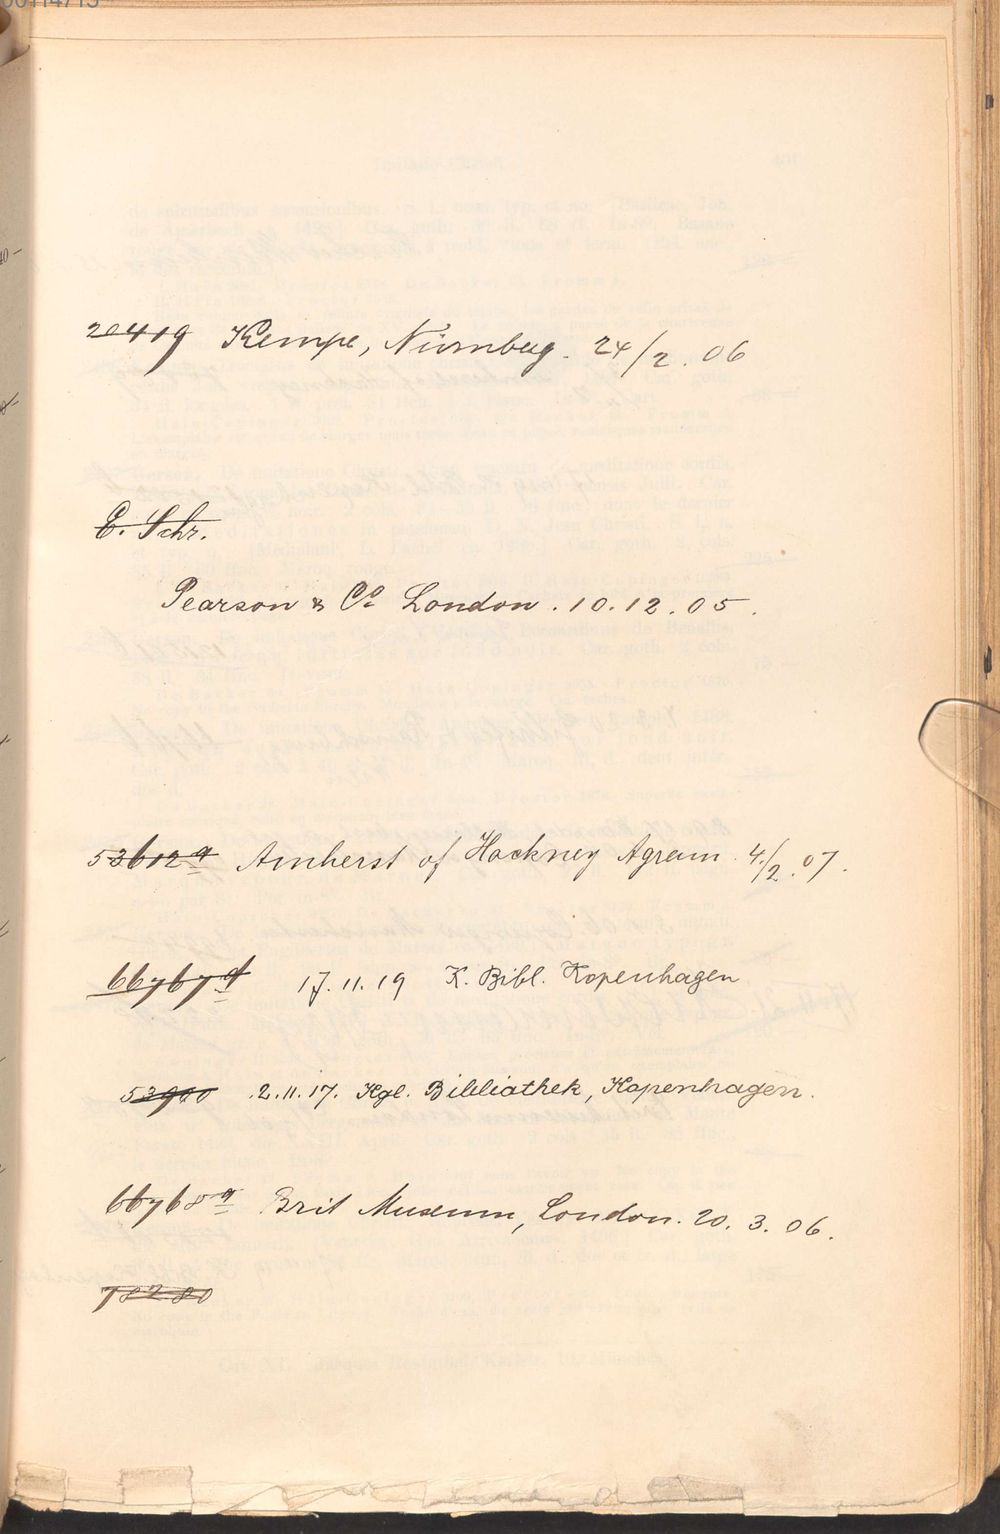 20419 Kempe, Nürnberg. 24/2. 06
E. Schr.
Pearson & Co London. 10.12.05.
53612a Amherst of Hackney 4/2. 07.
66767a 17.11.19 K. Bibl. Kopenhagen
53900 2.11.17. Kgl. Bibliothek, Kopenhagen.
66768a Brit Museum, London. 20. 3. 06.
78280